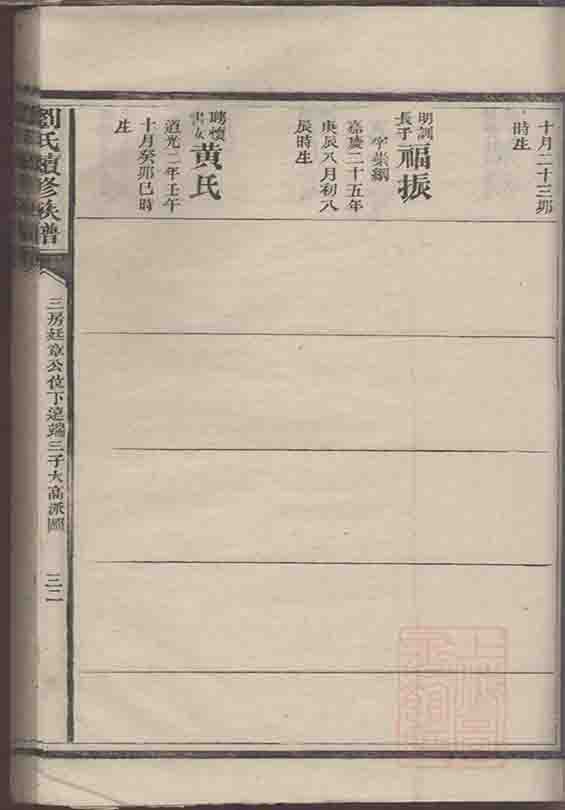 十月二十三卯
時生
明訓
長子
福振
字崇綱
嘉慶二十五年
庚辰八月初八
辰時生
聘懷
書女
黃氏
道光二年壬午
十月癸卯巳時
生
劉氏續修族譜
三房廷章公位下達端三子大高派圖
三二